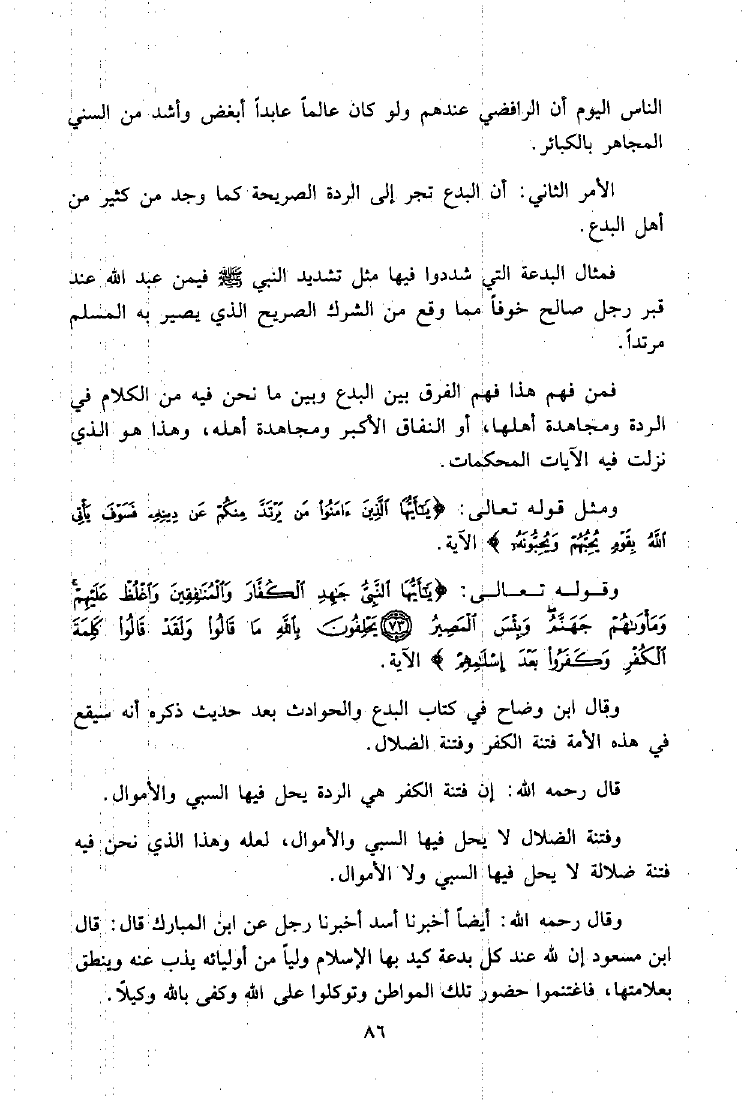 الناس اليوم أن الرافضي عندهم ولو كان عالماً عابداً أبغض وأشد من السني
المجاهر بالكبائر.
الأمر الثاني: أن البدع تجر إلى الردة الصريحة كما وجد من كثير من
أهل البدع.
فمثال البدعة التي شددوا فيها مثل تشديد النبي ﷺ فيمن عبد الله عند
قبر رجل صالح خوفاً مما وقع من الشرك الصريح الذي يصير به المسلم
مرتداً.
فمن فهم هذا فهم الفرق بين البدع وبين ما نحن فيه من الكلام في
الردة ومجاهدة أهلها، أو النفاق الأكبر ومجاهدة أهله، وهذا هو الذي
نزلت فيه الآيات المحكمات.
ومثل قوله تعالى: ﴿يَٰٓأَيُّهَا ٱلَّذِينَ ءَامَنُوا۟ مَن يَرْتَدَّ مِنكُمْ عَن دِينِهِۦ فَسَوْفَ يَأْتِى
ٱللَّهُ بِقَوْمٍ يُحِبُّهُمْ وَيُحِبُّونَهُۥٓ﴾ الآية.
وقوله تعالى: ﴿يَٰٓأَيُّهَا ٱلنَّبِىُّ جَٰهِدِ ٱلْكُفَّارَ وَٱلْمُنَٰفِقِينَ وَٱغْلُظْ عَلَيْهِمْ ۚ
وَمَأْوَىٰهُمْ جَهَنَّمُ ۖ وَبِئْسَ ٱلْمَصِيرُ ﴿٧٣﴾ يَحْلِفُونَ بِٱللَّهِ مَا قَالُوا۟ وَلَقَدْ قَالُوا۟ كَلِمَةَ
ٱلْكُفْرِ وَكَفَرُوا۟ بَعْدَ إِسْلَٰمِهِمْ﴾ الآية.
وقال ابن وضاح في كتاب البدع والحوادث بعد حديث ذكره أنه سيقع
في هذه الأمة فتنة الكفر وفتنة الضلال.
قال رحمه الله: إن فتنة الكفر هي الردة يحل فيها السبي والأموال.
وفتنة الضلال لا يحل فيها السبي والأموال، لعله وهذا الذي نحن فيه
فتنة ضلالة لا يحل فيها السبي ولا الأموال.
وقال رحمه الله: أيضاً أخبرنا أسد أخبرنا رجل عن ابن المبارك قال: قال
ابن مسعود إن لله عند كل بدعة كيد بها الإسلام ولياً من أوليائه يذب عنه وينطق
بعلامتها، فاغتنموا حضور تلك المواطن وتوكلوا على الله وكفى بالله وكيلاً.
٨٦